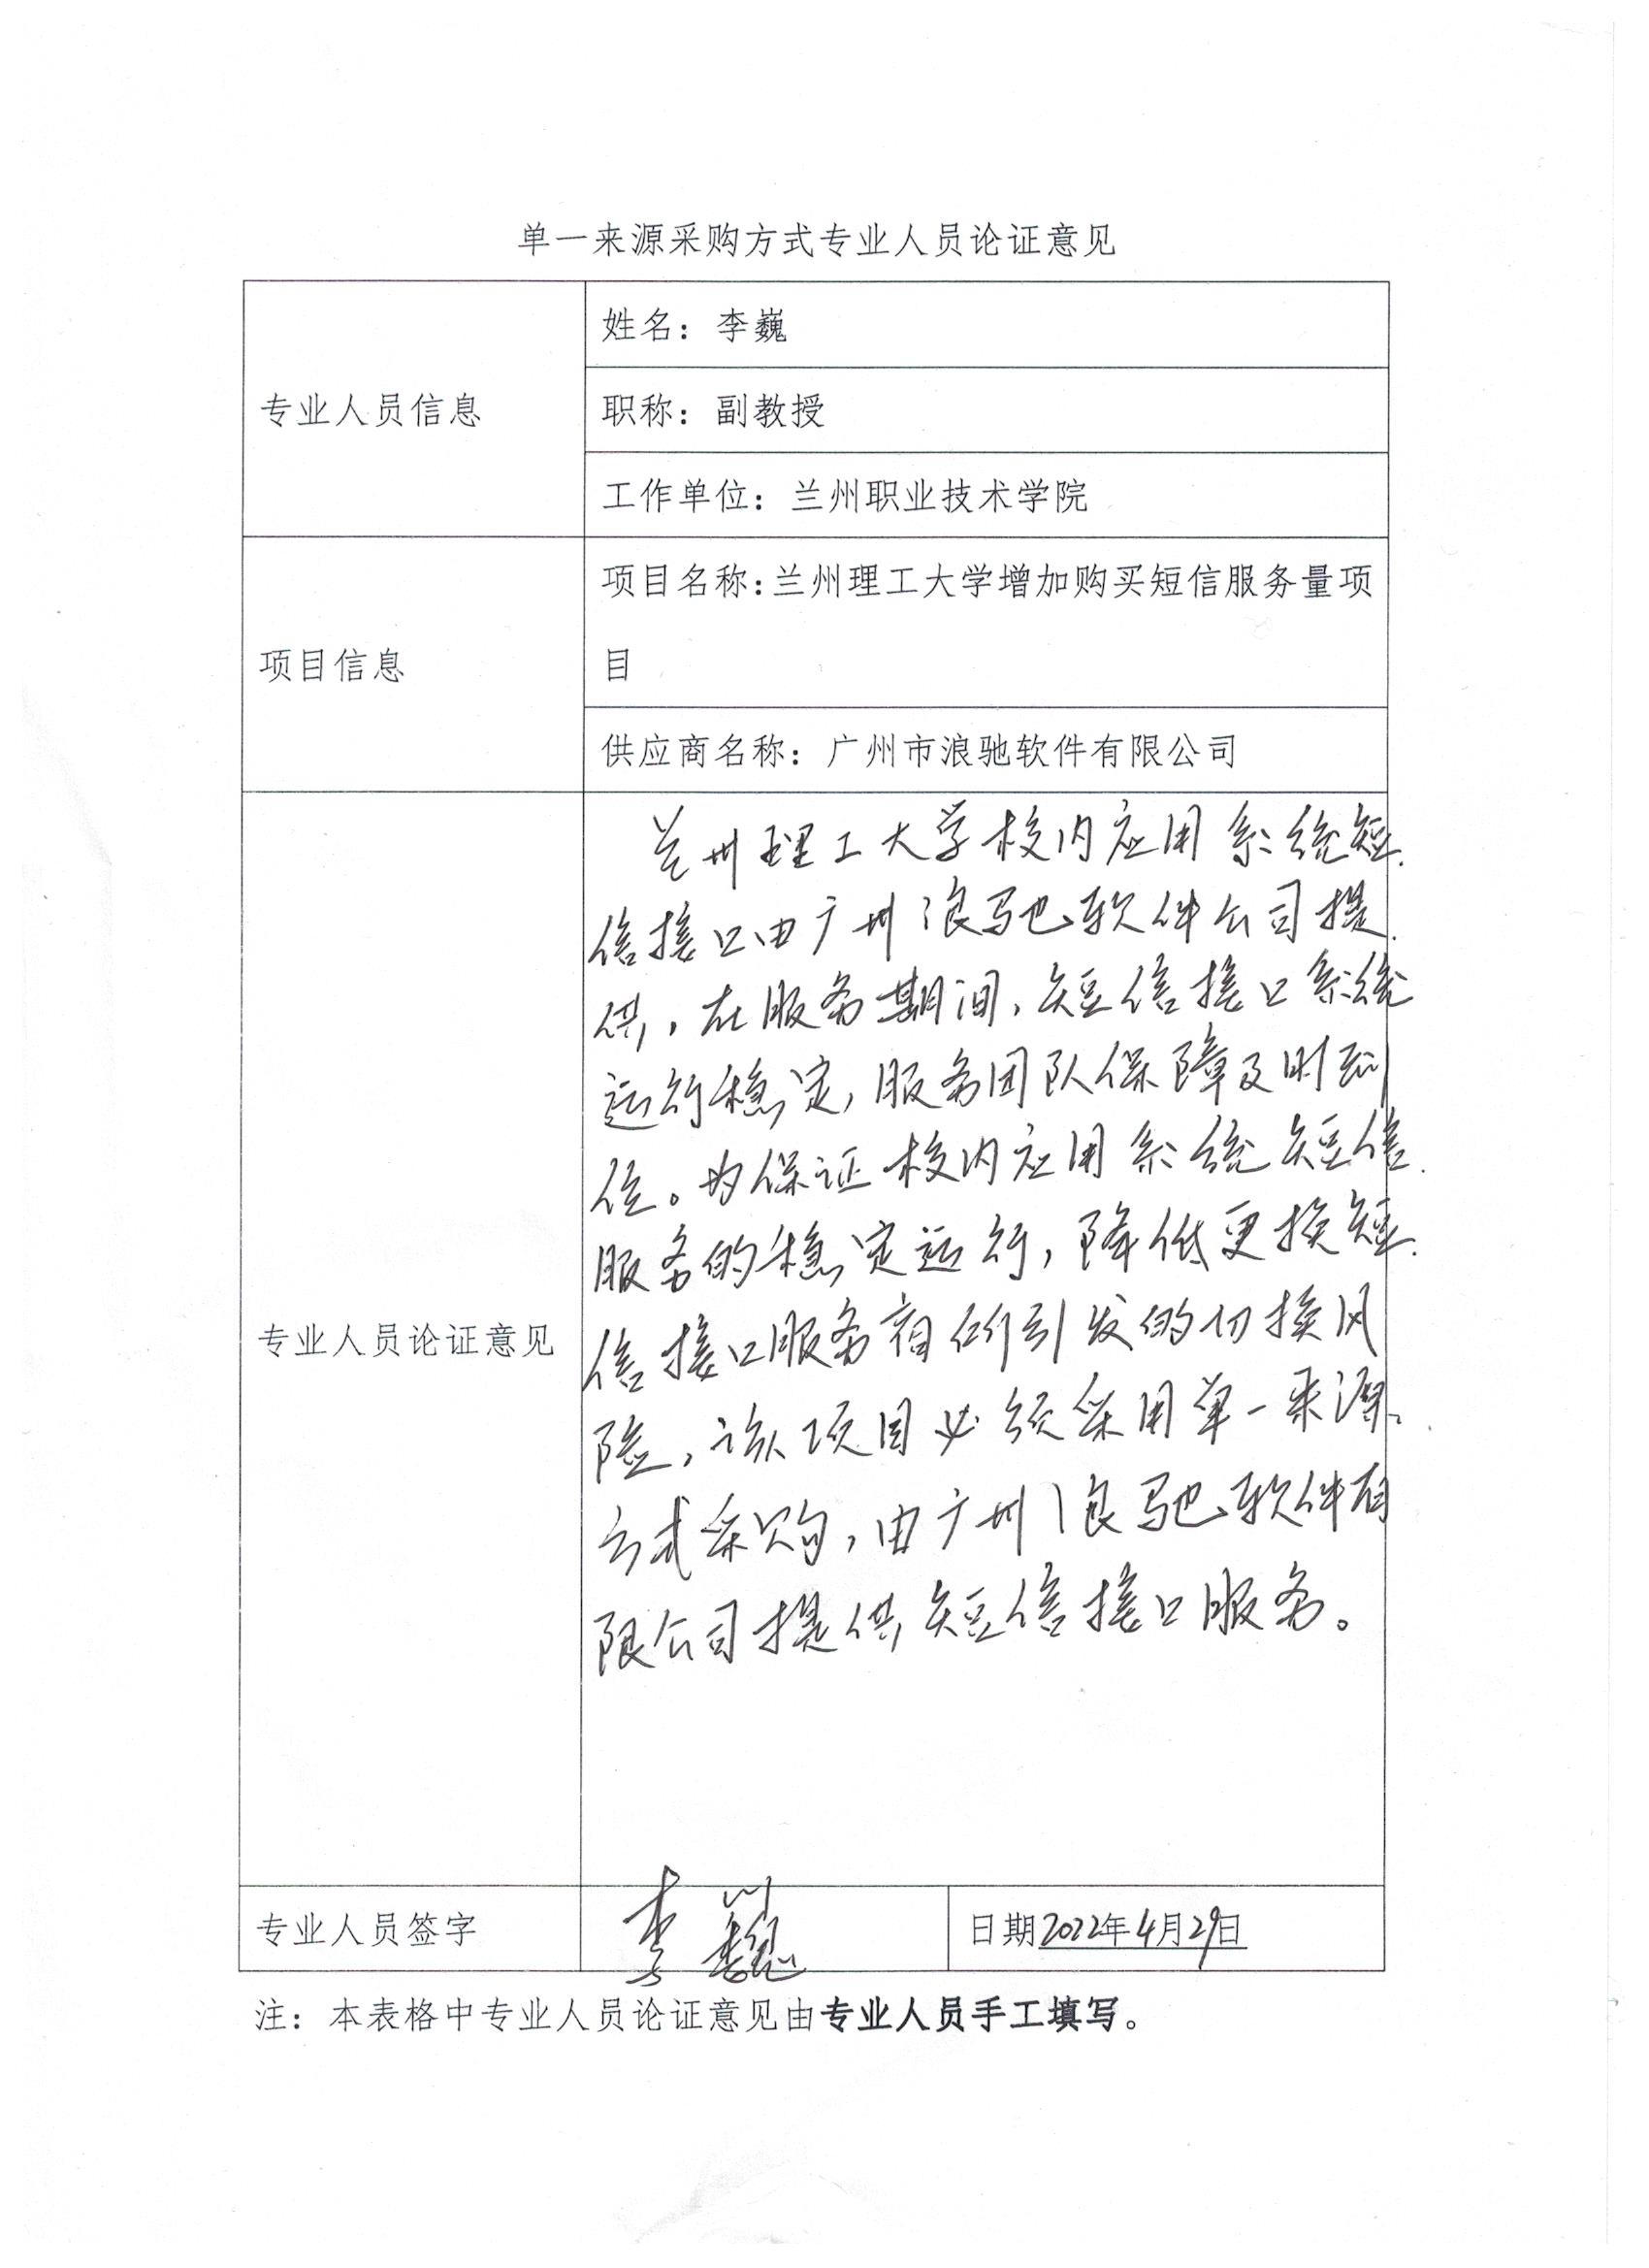 单一来源采购方式专业人员论证意见
专业人员信息
姓名：李巍
职称：副教授
工作单位：兰州职业技术学院
项目信息
项目名称：兰州理工大学增加购买短信服务量项
目
供应商名称：广州市浪驰软件有限公司
专业人员论证意见
兰州理工大学校内应用系统短
信接口由广州浪驰软件公司提
供，在服务期间，短信接口系统
运行稳定，服务团队保障及时到
位。为保证校内应用系统短信
服务的稳定运行，降低更换短
信接口服务商所引发的切换风
险，该项目必须采用单一来源
方式采购，由广州浪驰软件有
限公司提供短信接口服务。
专业人员签字
李巍
日期2022年4月29日
注：本表格中专业人员论证意见由专业人员手工填写。